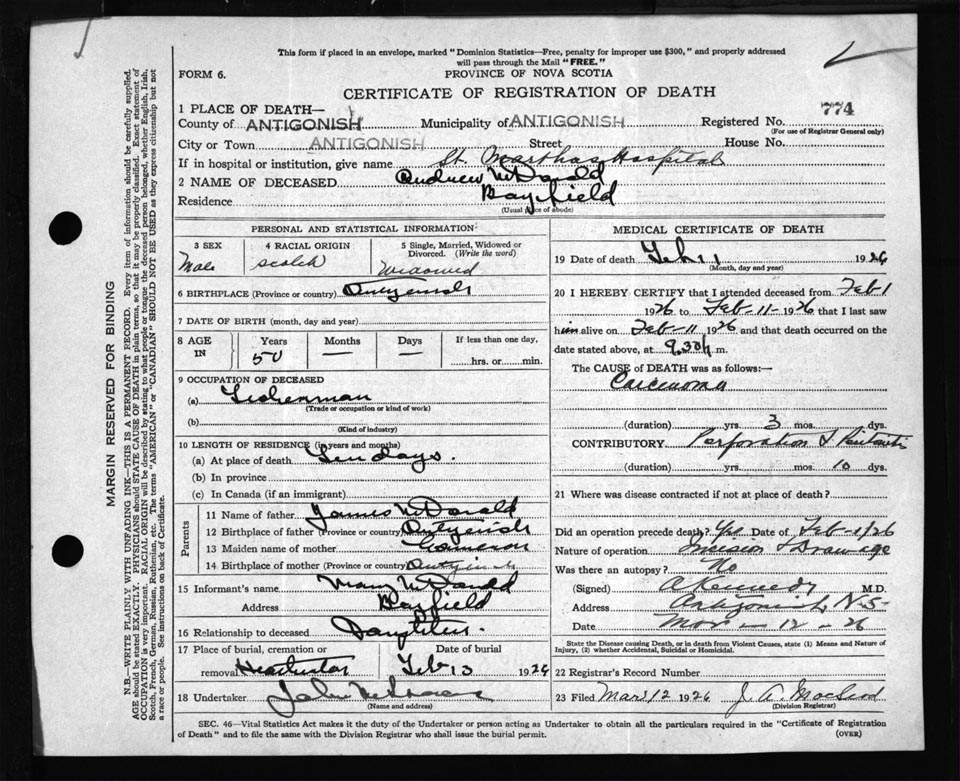 This form if placed in an envelope, marked "Dominion Statistics—Free, penalty for improper use $300," and properly addressed
will pass through the Mail "FREE."
FORM 6.
PROVINCE OF NOVA SCOTIA
CERTIFICATE OF REGISTRATION OF DEATH
774
1 PLACE OF DEATH—
County of ANTIGONISH Municipality of ANTIGONISH Registered No.
(For use of Registrar General only)
City or Town ANTIGONISH Street House No.
If in hospital or institution, give name St. Marthas Hospital
2 NAME OF DECEASED Andrew McDonald
Residence Bayfield
(Usual place of abode)
PERSONAL AND STATISTICAL INFORMATION
3 SEX 4 RACIAL ORIGIN 5 Single, Married, Widowed or
Divorced. (Write the word)
Male Scotch Widowed
6 BIRTHPLACE (Province or country) Antigonish
7 DATE OF BIRTH (month, day and year)
8 AGE IN Years Months Days If less than one day,
50 — — hrs. or min.
9 OCCUPATION OF DECEASED
(a) Fisherman
(Trade or occupation or kind of work)
(b)
(Kind of industry)
10 LENGTH OF RESIDENCE (in years and months)
(a) At place of death Ten days.
(b) In province
(c) In Canada (if an immigrant)
Parents
11 Name of father James McDonald
12 Birthplace of father (Province or country) Antigonish
13 Maiden name of mother Cameron
14 Birthplace of mother (Province or country) Antigonish
15 Informant's name Mary McDonald
Address Bayfield
16 Relationship to deceased Daughter.
17 Place of burial, cremation or Date of burial
removal Feb 13 1926
18 Undertaker John
(Name and address)
MEDICAL CERTIFICATE OF DEATH
19 Date of death Feb 11 1926
(Month, day and year)
20 I HEREBY CERTIFY that I attended deceased from Feb 1
1926 to Feb-11-1926 that I last saw
him alive on Feb-11 1926 and that death occurred on the
date stated above, at 9.30 p m.
The CAUSE of DEATH was as follows:—
Carcinoma
(duration) yrs. 3 mos. dys.
CONTRIBUTORY Perforation & Peritonitis
(duration) yrs. mos. 10 dys.
21 Where was disease contracted if not at place of death?
Did an operation precede death? Yes Date of Feb-1/26
Nature of operation Incision & Drainage
Was there an autopsy? No
(Signed) A Kennedy M.D.
Address Antigonish, N-S-
Date Mar - 12 - 26
State the Disease causing Death, or in death from Violent Causes, state (1) Means and Nature of
Injury, (2) whether Accidental, Suicidal or Homicidal.
22 Registrar's Record Number
23 Filed Mar 12 1926 J. A. MacLeod
(Division Registrar)
SEC. 46—Vital Statistics Act makes it the duty of the Undertaker or person acting as Undertaker to obtain all the particulars required in the "Certificate of Registration
of Death" and to file the same with the Division Registrar who shall issue the burial permit.
(OVER)
MARGIN RESERVED FOR BINDING
N.B.—WRITE PLAINLY WITH UNFADING INK—THIS IS A PERMANENT RECORD. Every item of information should be carefully supplied.
AGE should be stated EXACTLY. PHYSICIANS should STATE CAUSE OF DEATH in plain terms, so that it may be properly classified. Exact statement of
OCCUPATION is very important. RACIAL ORIGIN will be described by stating to what people or tongue the deceased person belonged, whether English, Irish,
Scotch, French, German, Russian, Ruthenian, etc. The terms "AMERICAN" or "CANADIAN" SHOULD NOT BE USED as they express citizenship but not
a race or people. See instructions on back of Certificate.